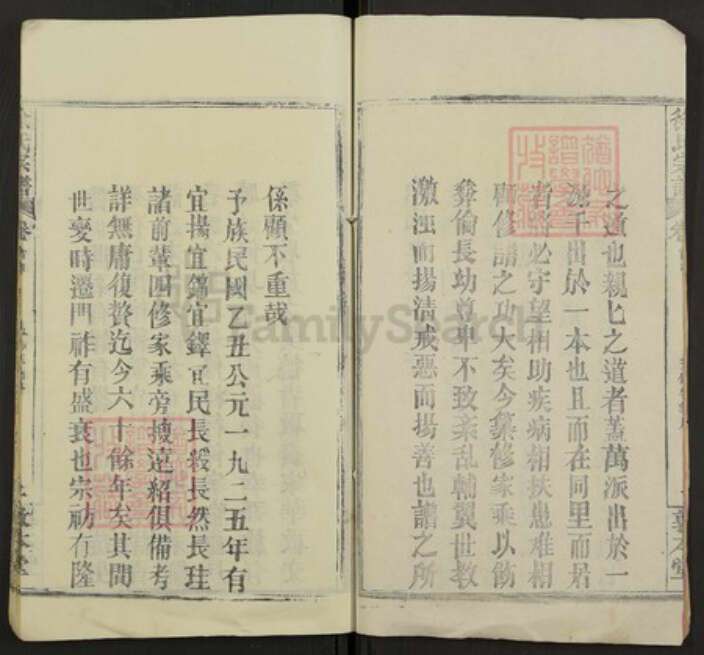 之道也親匕之道者蓋萬派出於一
千出於一本也且而在同里而居
者必守望相助疾病相扶患难相
修譜之功大矣今纂修家乘以飭
彝倫長幼尊卑不致紊乱輔翼世教
激浊而揚清戒惡而揚善也譜之所
係顧不重哉
予族民國乙丑公元一九二五年有
宜揚宜錦宜鐸宜民長毅長然長珪
諸前輩四修家乘旁搜遠紹俱備考
詳無庸復贅迄今六十餘年矣其間
世变時遷門祚有盛衰也宗祊有隆
徐氏宗譜
卷首
敦本堂
FamilySearch